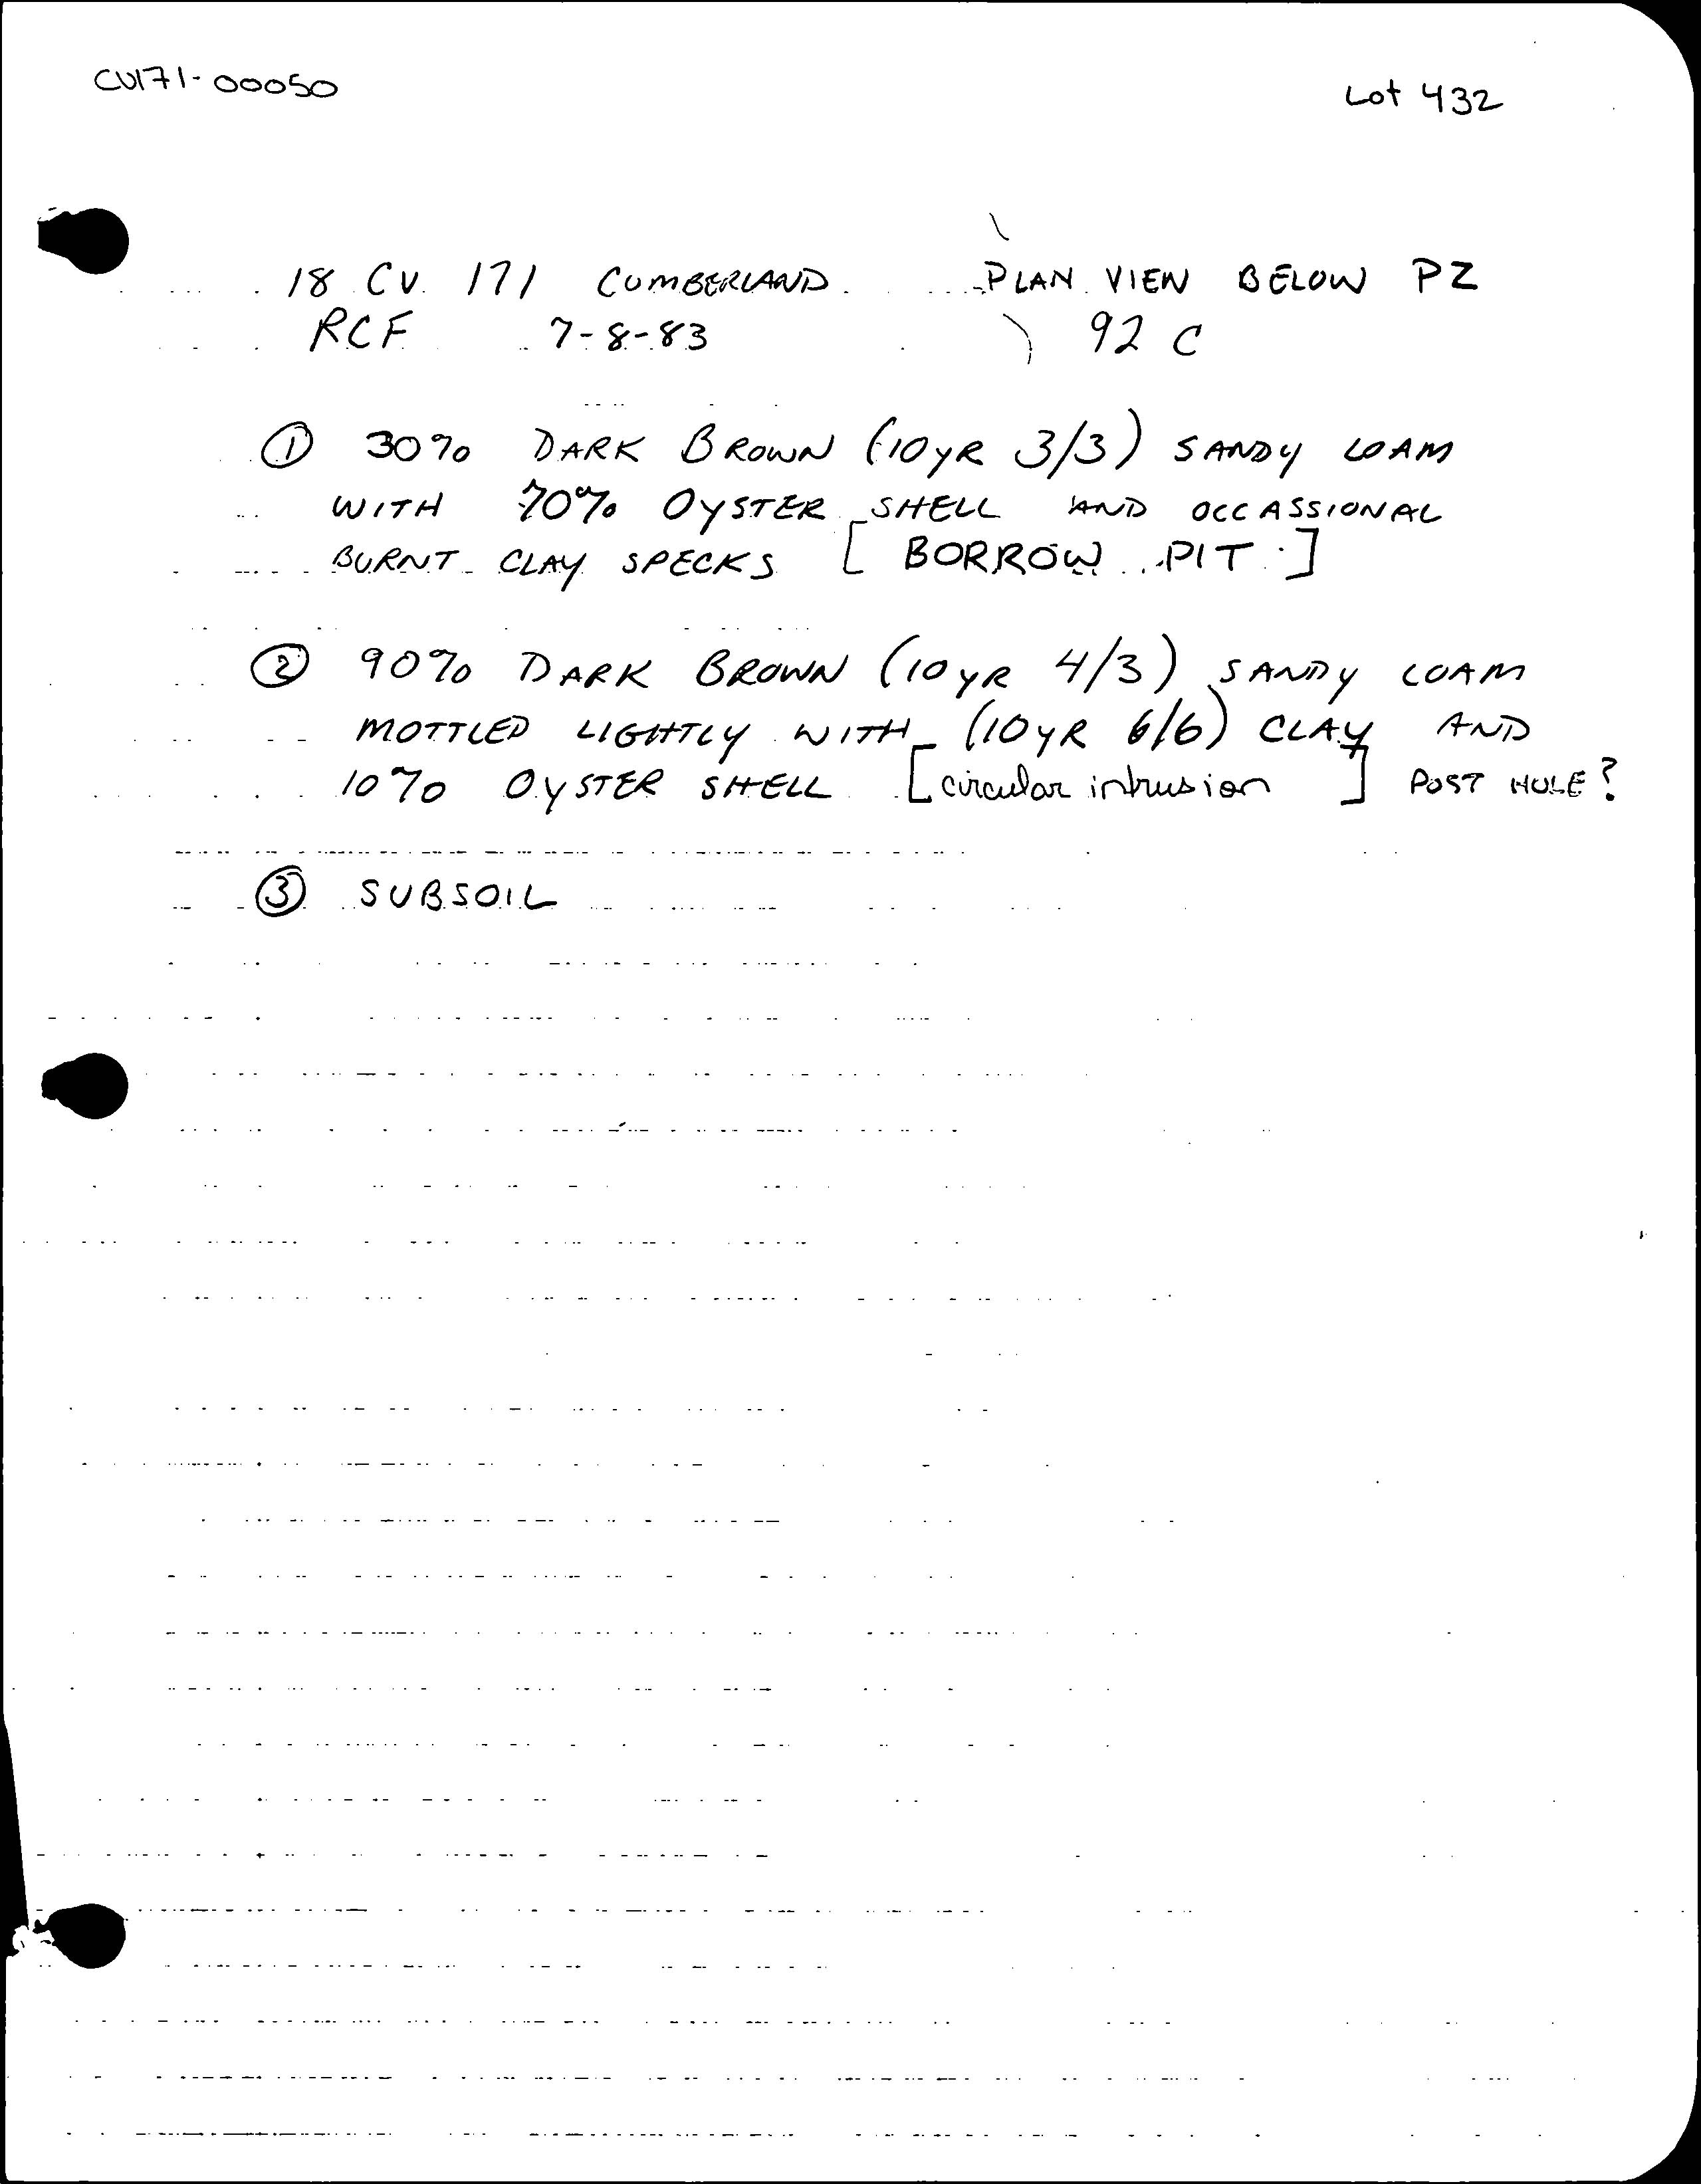 CV171-00050
Lot 432
18 CV 171 CUMBERLAND PLAN VIEW BELOW PZ
RCF 7-8-83 92 C
① 30% DARK BROWN (10YR 3/3) SANDY LOAM
WITH 70% OYSTER SHELL AND OCCASSIONAL
BURNT CLAY SPECKS [BORROW PIT]
② 90% DARK BROWN (10YR 4/3) SANDY LOAM
MOTTLED LIGHTLY WITH (10YR 6/6) CLAY AND
10% OYSTER SHELL [circular intrusion] POST HOLE?
③ SUBSOIL